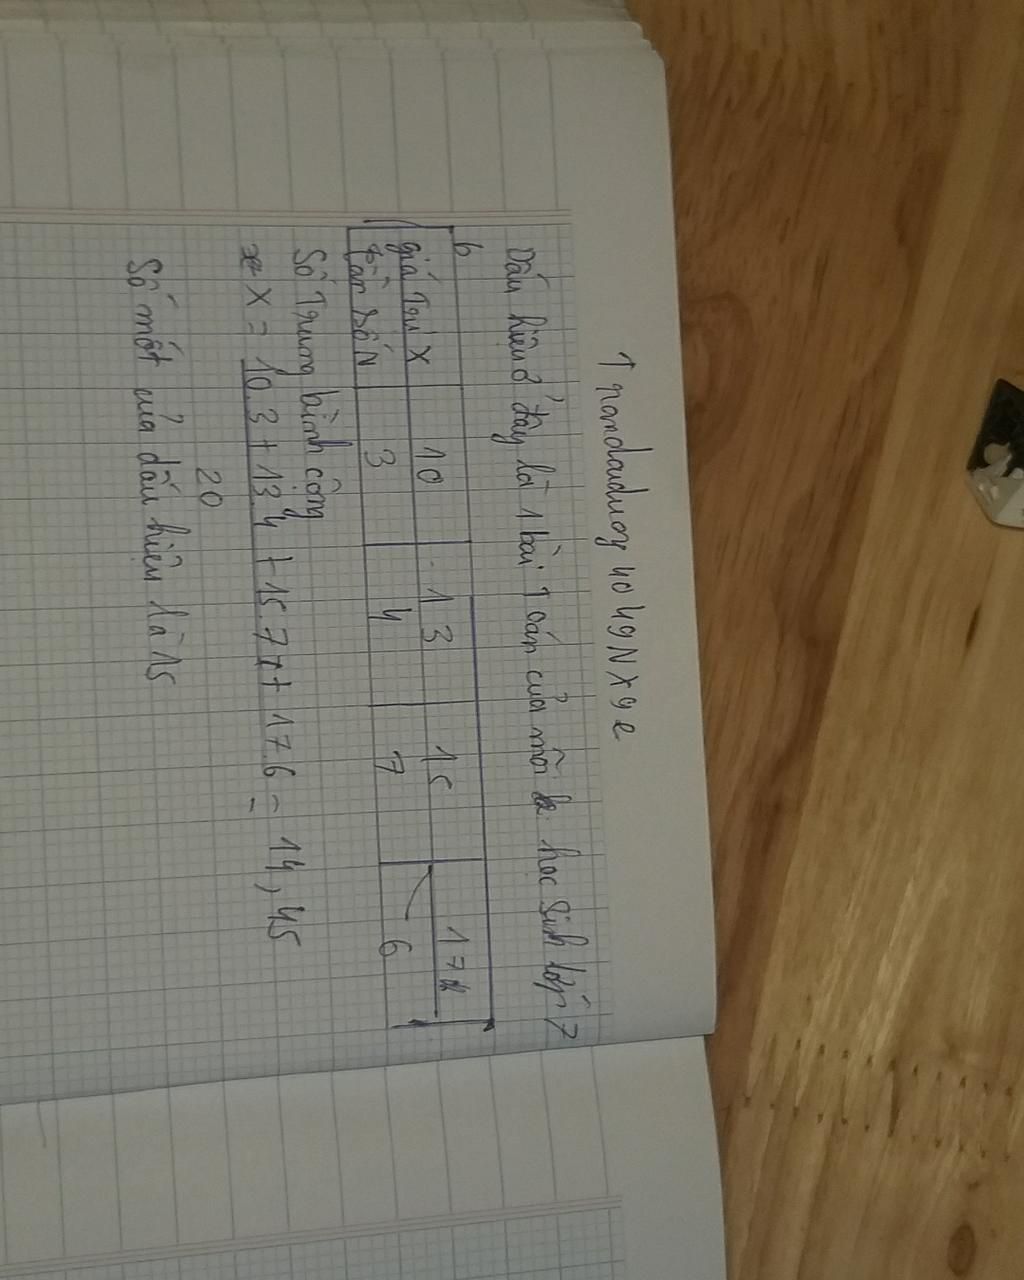 Trandaiduong4049NX9e
Dấu hiệu ở đây là 1 bài Toán của mỗi học sinh lớp 7
b
giá Trị X 10 13 15 17
tần số N 3 4 7 6
Số Trung bình cộng
X = 10.3+13.4+15.7+17.6 = 14,45
20
Số mốt của dấu hiệu là 15